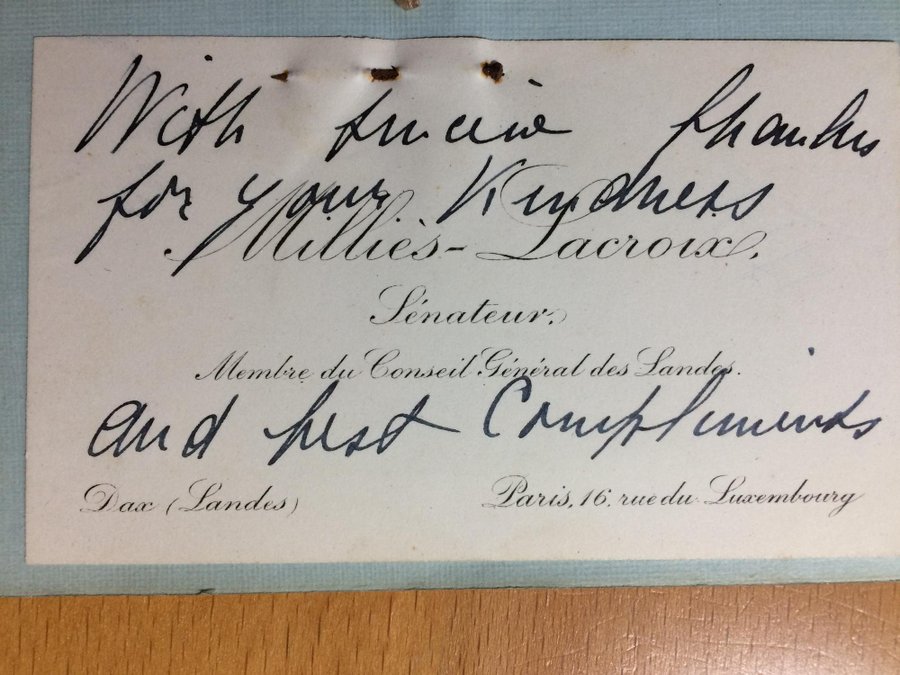 With sincere thanks
for your kindness
Milliès-Lacroix.
Sénateur.
Membre du Conseil Général des Landes.
and best Compliments
Dax (Landes)
Paris, 16, rue du Luxembourg